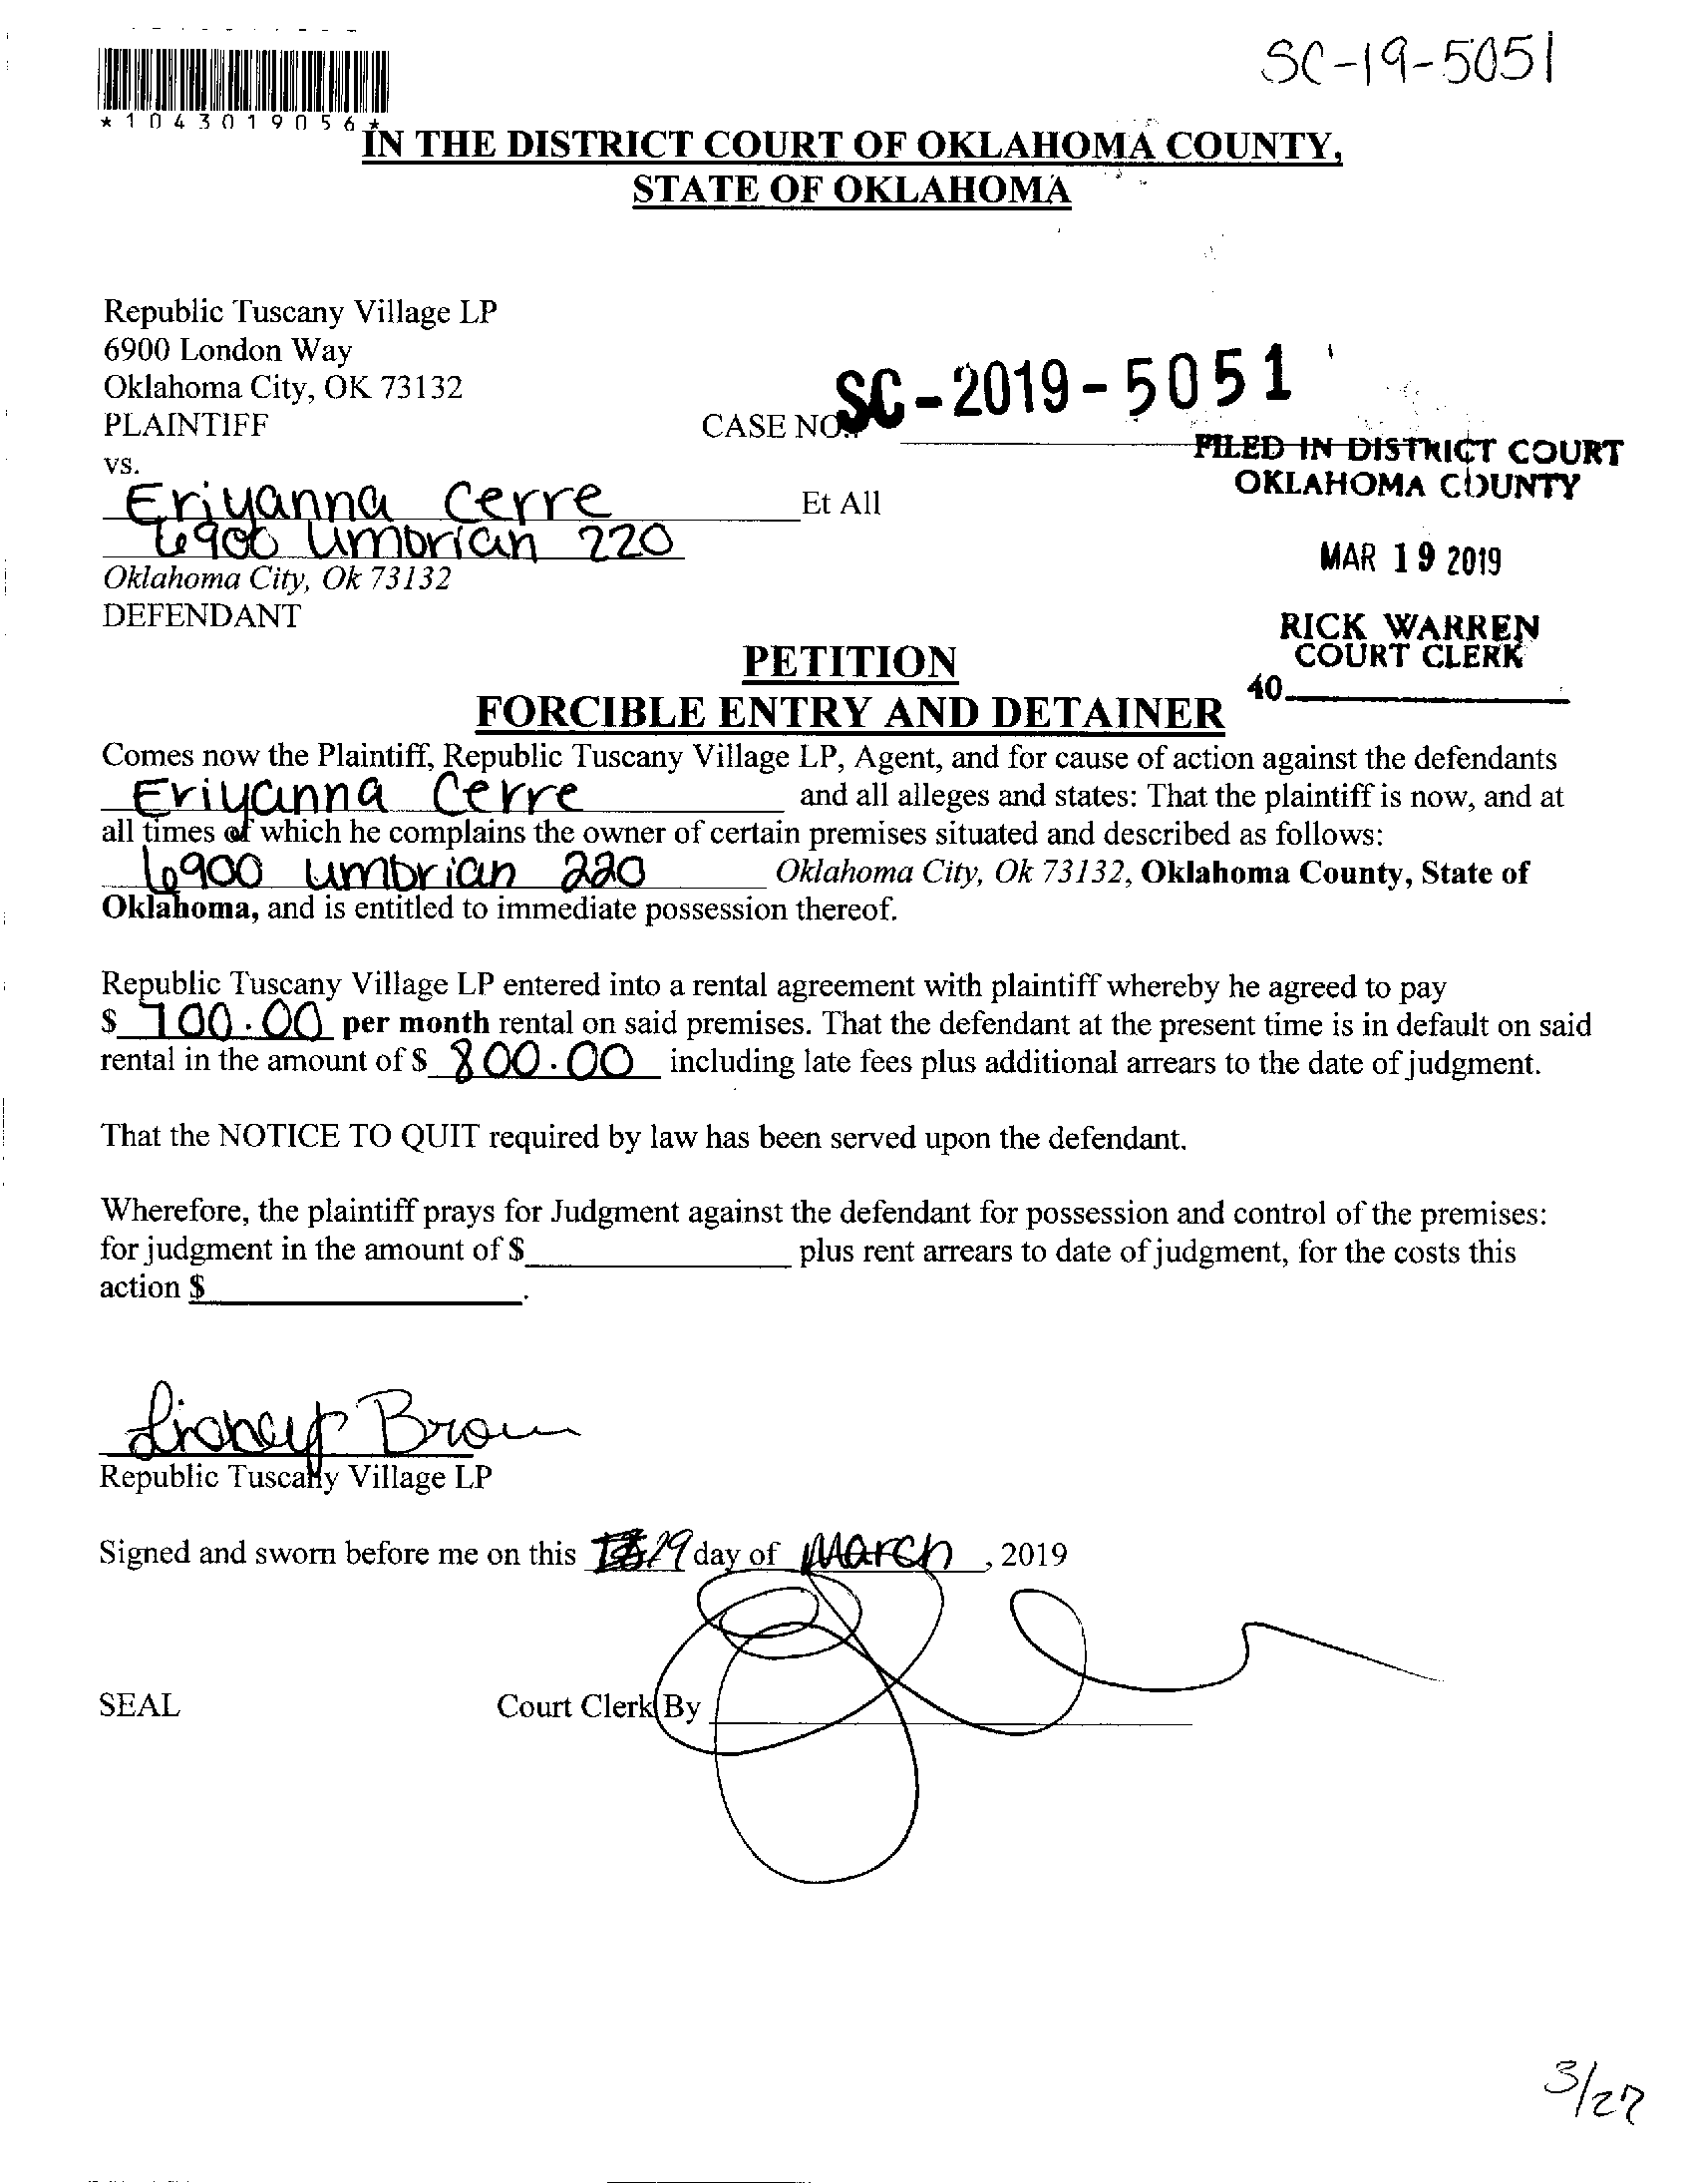 SC-19-5051
*1043019056*
IN THE DISTRICT COURT OF OKLAHOMA COUNTY,
STATE OF OKLAHOMA
Republic Tuscany Village LP
6900 London Way
Oklahoma City, OK 73132
PLAINTIFF
CASE NO.: SC-2019-5051
vs.
FILED IN DISTRICT COURT
OKLAHOMA COUNTY
Eriyanna Cerre Et All
6900 Umbrian 220
MAR 19 2019
Oklahoma City, Ok 73132
DEFENDANT
RICK WARREN
COURT CLERK
40
PETITION
FORCIBLE ENTRY AND DETAINER
Comes now the Plaintiff, Republic Tuscany Village LP, Agent, and for cause of action against the defendants
Eriyanna Cerre and all alleges and states: That the plaintiff is now, and at
all times of which he complains the owner of certain premises situated and described as follows:
6900 umbrian 220 Oklahoma City, Ok 73132, Oklahoma County, State of
Oklahoma, and is entitled to immediate possession thereof.
Republic Tuscany Village LP entered into a rental agreement with plaintiff whereby he agreed to pay
$ 700.00 per month rental on said premises. That the defendant at the present time is in default on said
rental in the amount of $ 800.00 including late fees plus additional arrears to the date of judgment.
That the NOTICE TO QUIT required by law has been served upon the defendant.
Wherefore, the plaintiff prays for Judgment against the defendant for possession and control of the premises:
for judgment in the amount of $ plus rent arrears to date of judgment, for the costs this
action $ .
Brown
Republic Tuscany Village LP
Signed and sworn before me on this 19 day of March, 2019
SEAL Court Clerk By
3/27